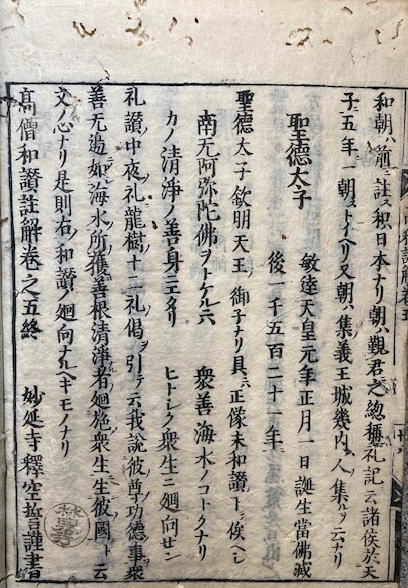 和朝ハ前ニ註ス积日本ナリ朝ハ觀君之惣稱礼記云諸侯於天
子五年一朝ストイヘリ又朝ハ集義王城幾内ニ人集ルヲ云ナリ
聖德太子
敏達天皇元年正月一日誕生當佛滅
後一千五百二十一年
聖德太子欽明天王ノ御子ナリ具ニハ正像末和讃ニ俟ヘシ
南无阿弥陀佛ヲトケルニハ　衆善海水ノコトクナリ
カノ清淨ノ善身ニエタリ　ヒトシク衆生ニ廻向セン
礼讃中夜礼龍樹十二礼偈ヲ引テ云我說彼尊功德事衆
善无邉如海水所獲善根清淨者廻施衆生生彼國ト云
文ノ心ナリ是則右ノ和讃ノ廻向ナルヘキモノナリ
高僧和讃註解卷之五終　妙延寺釋空誓謹書